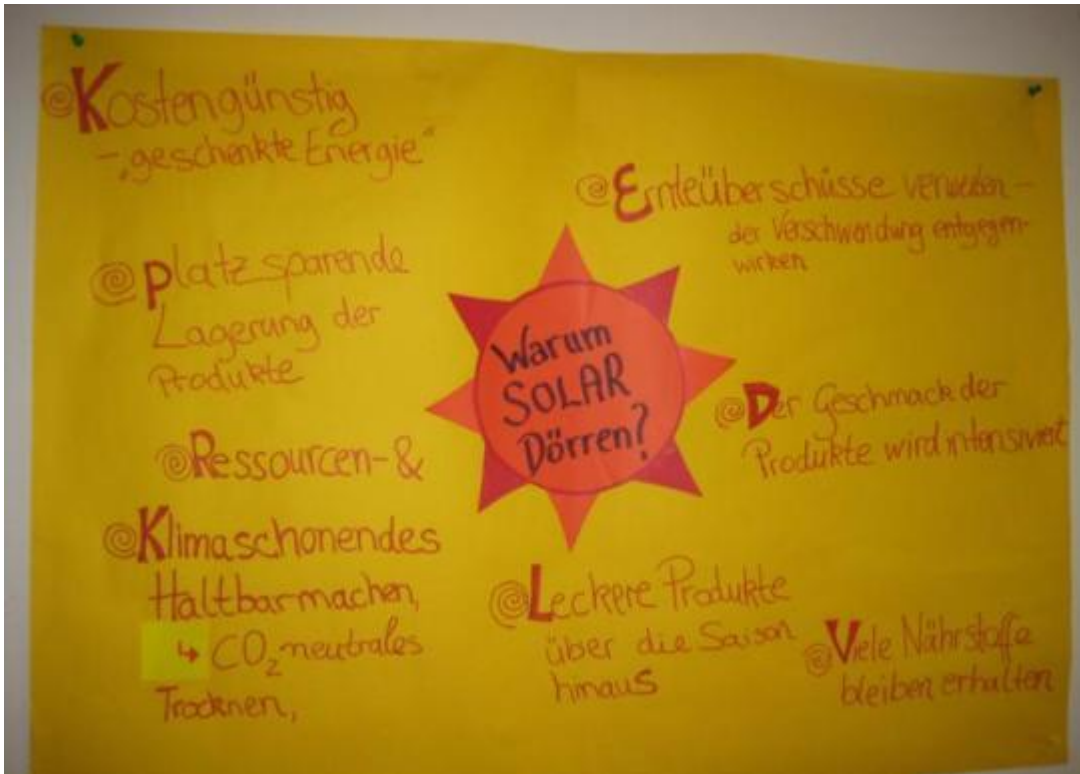 Kostengünstig
- „geschenkte Energie"
Platzsparende
Lagerung der
Produkte
Ressourcen- &
Klimaschonendes
Haltbarmachen,
↳ CO₂-neutrales
Trocknen,
Warum
SOLAR
Dörren?
Ernteüberschüsse verwerten -
der Verschwendung entgegen-
wirken
Der Geschmack der
Produkte wird intensiviert
Leckere Produkte
über die Saison
hinaus
Viele Nährstoffe
bleiben erhalten